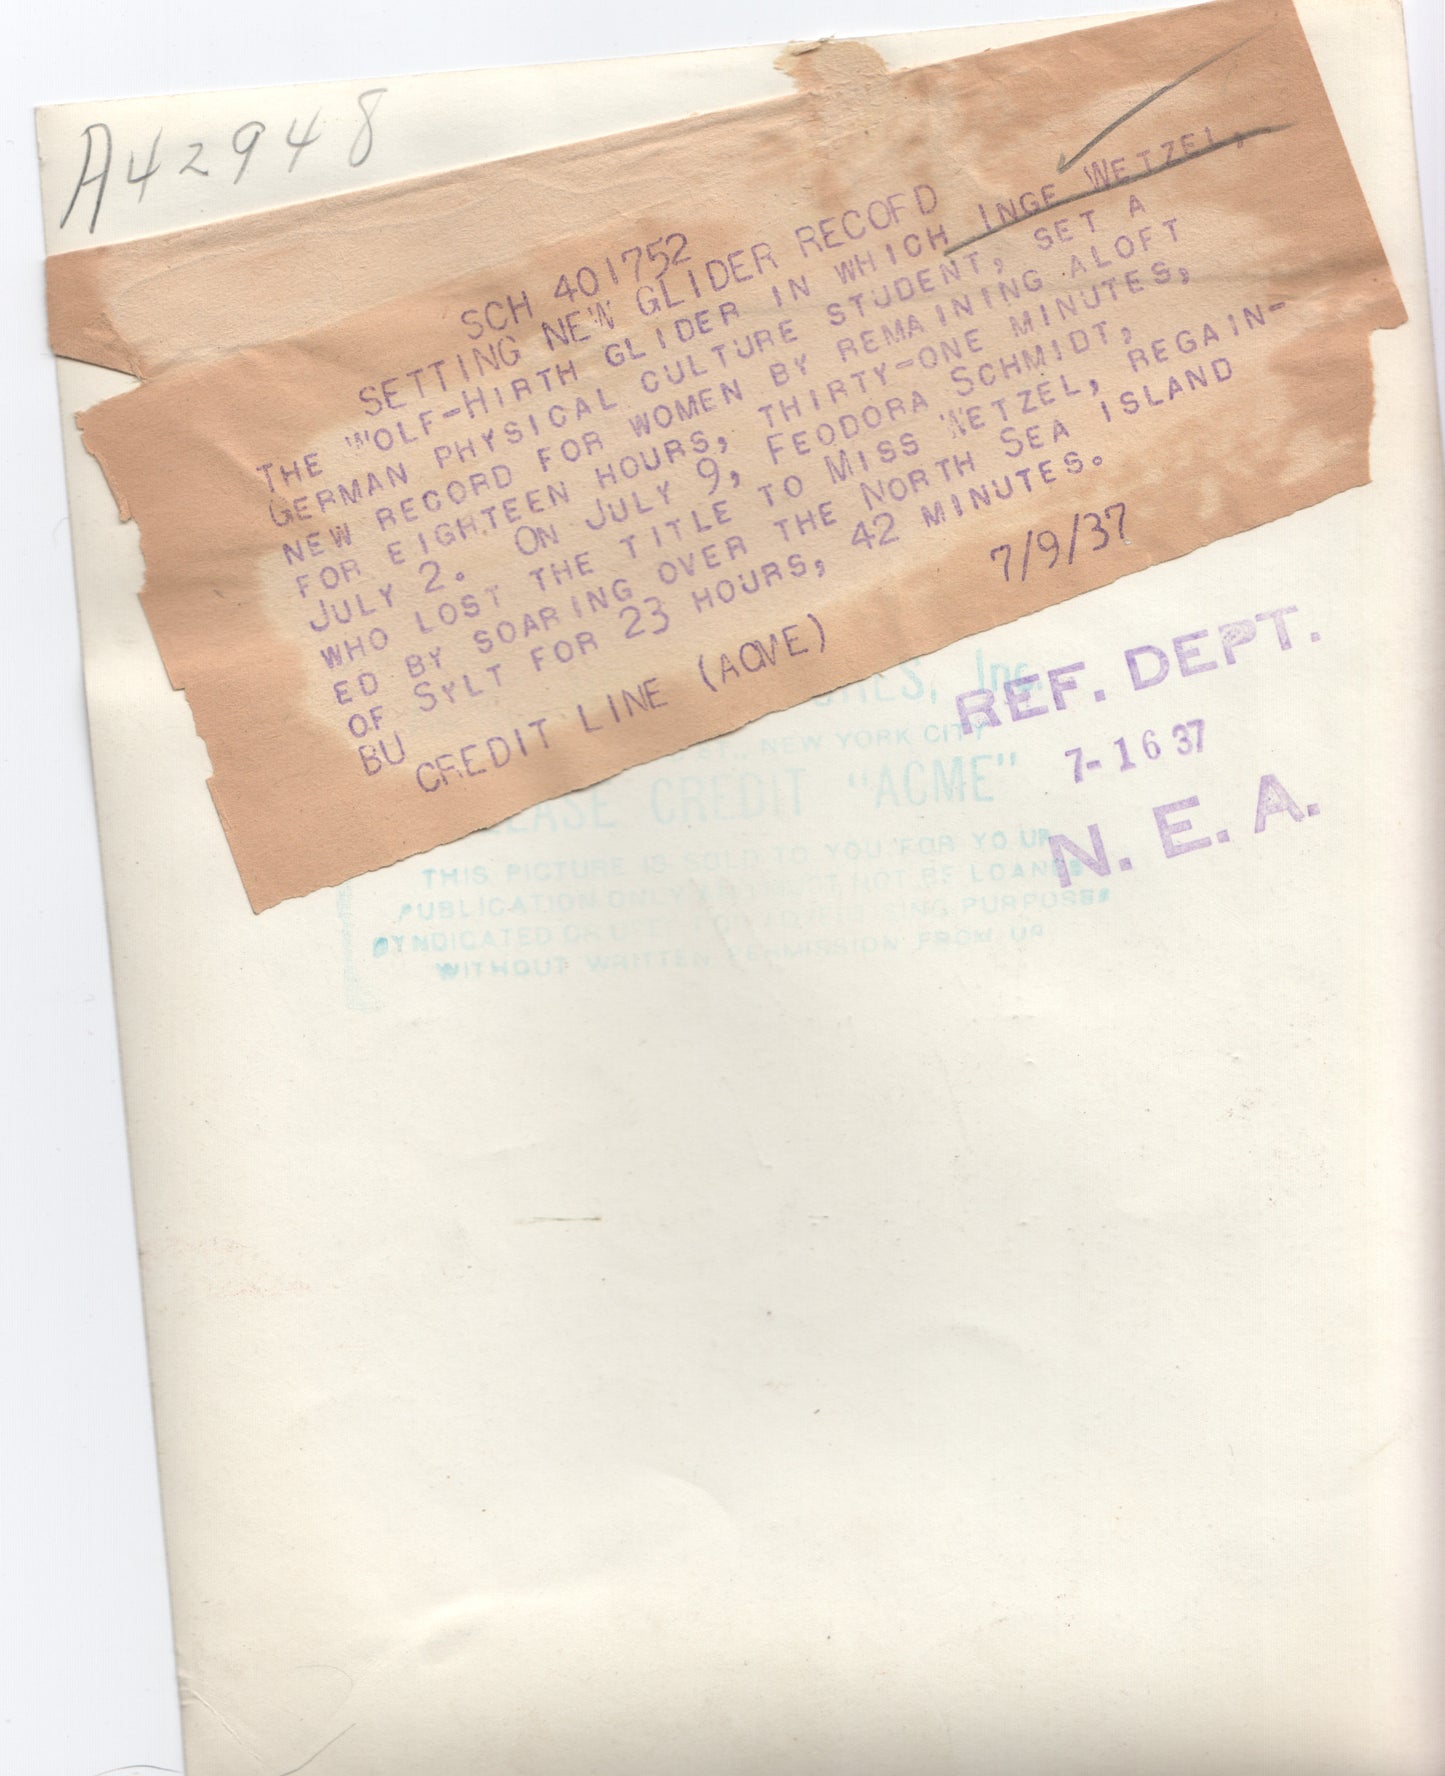 A42948
SCH 401752
SETTING NEW GLIDER RECOFD
THE WOLF-HIRTH GLIDER IN WHICH INGE WETZEL,
GERMAN PHYSICAL CULTURE STUDENT, SET A
NEW RECORD FOR WOMEN BY REMAINING ALOFT
FOR EIGHTEEN HOURS, THIRTY-ONE MINUTES,
JULY 2. ON JULY 9, FEODORA SCHMIDT,
WHO LOST THE TITLE TO MISS WETZEL, REGAIN-
ED BY SOARING OVER THE NORTH SEA ISLAND
OF SYLT FOR 23 HOURS, 42 MINUTES.
BU
CREDIT LINE (ACME)
7/9/37
Inc.
NEW YORK CITY
CREDIT "ACME"
THIS PICTURE IS SOLD TO YOU FOR YOUR
PUBLICATION ONLY AND MUST NOT BE LOANED
SYNDICATED OR USED FOR ADVERTISING PURPOSES
WITHOUT WRITTEN PERMISSION FROM US
REF. DEPT.
7-16 37
N. E. A.